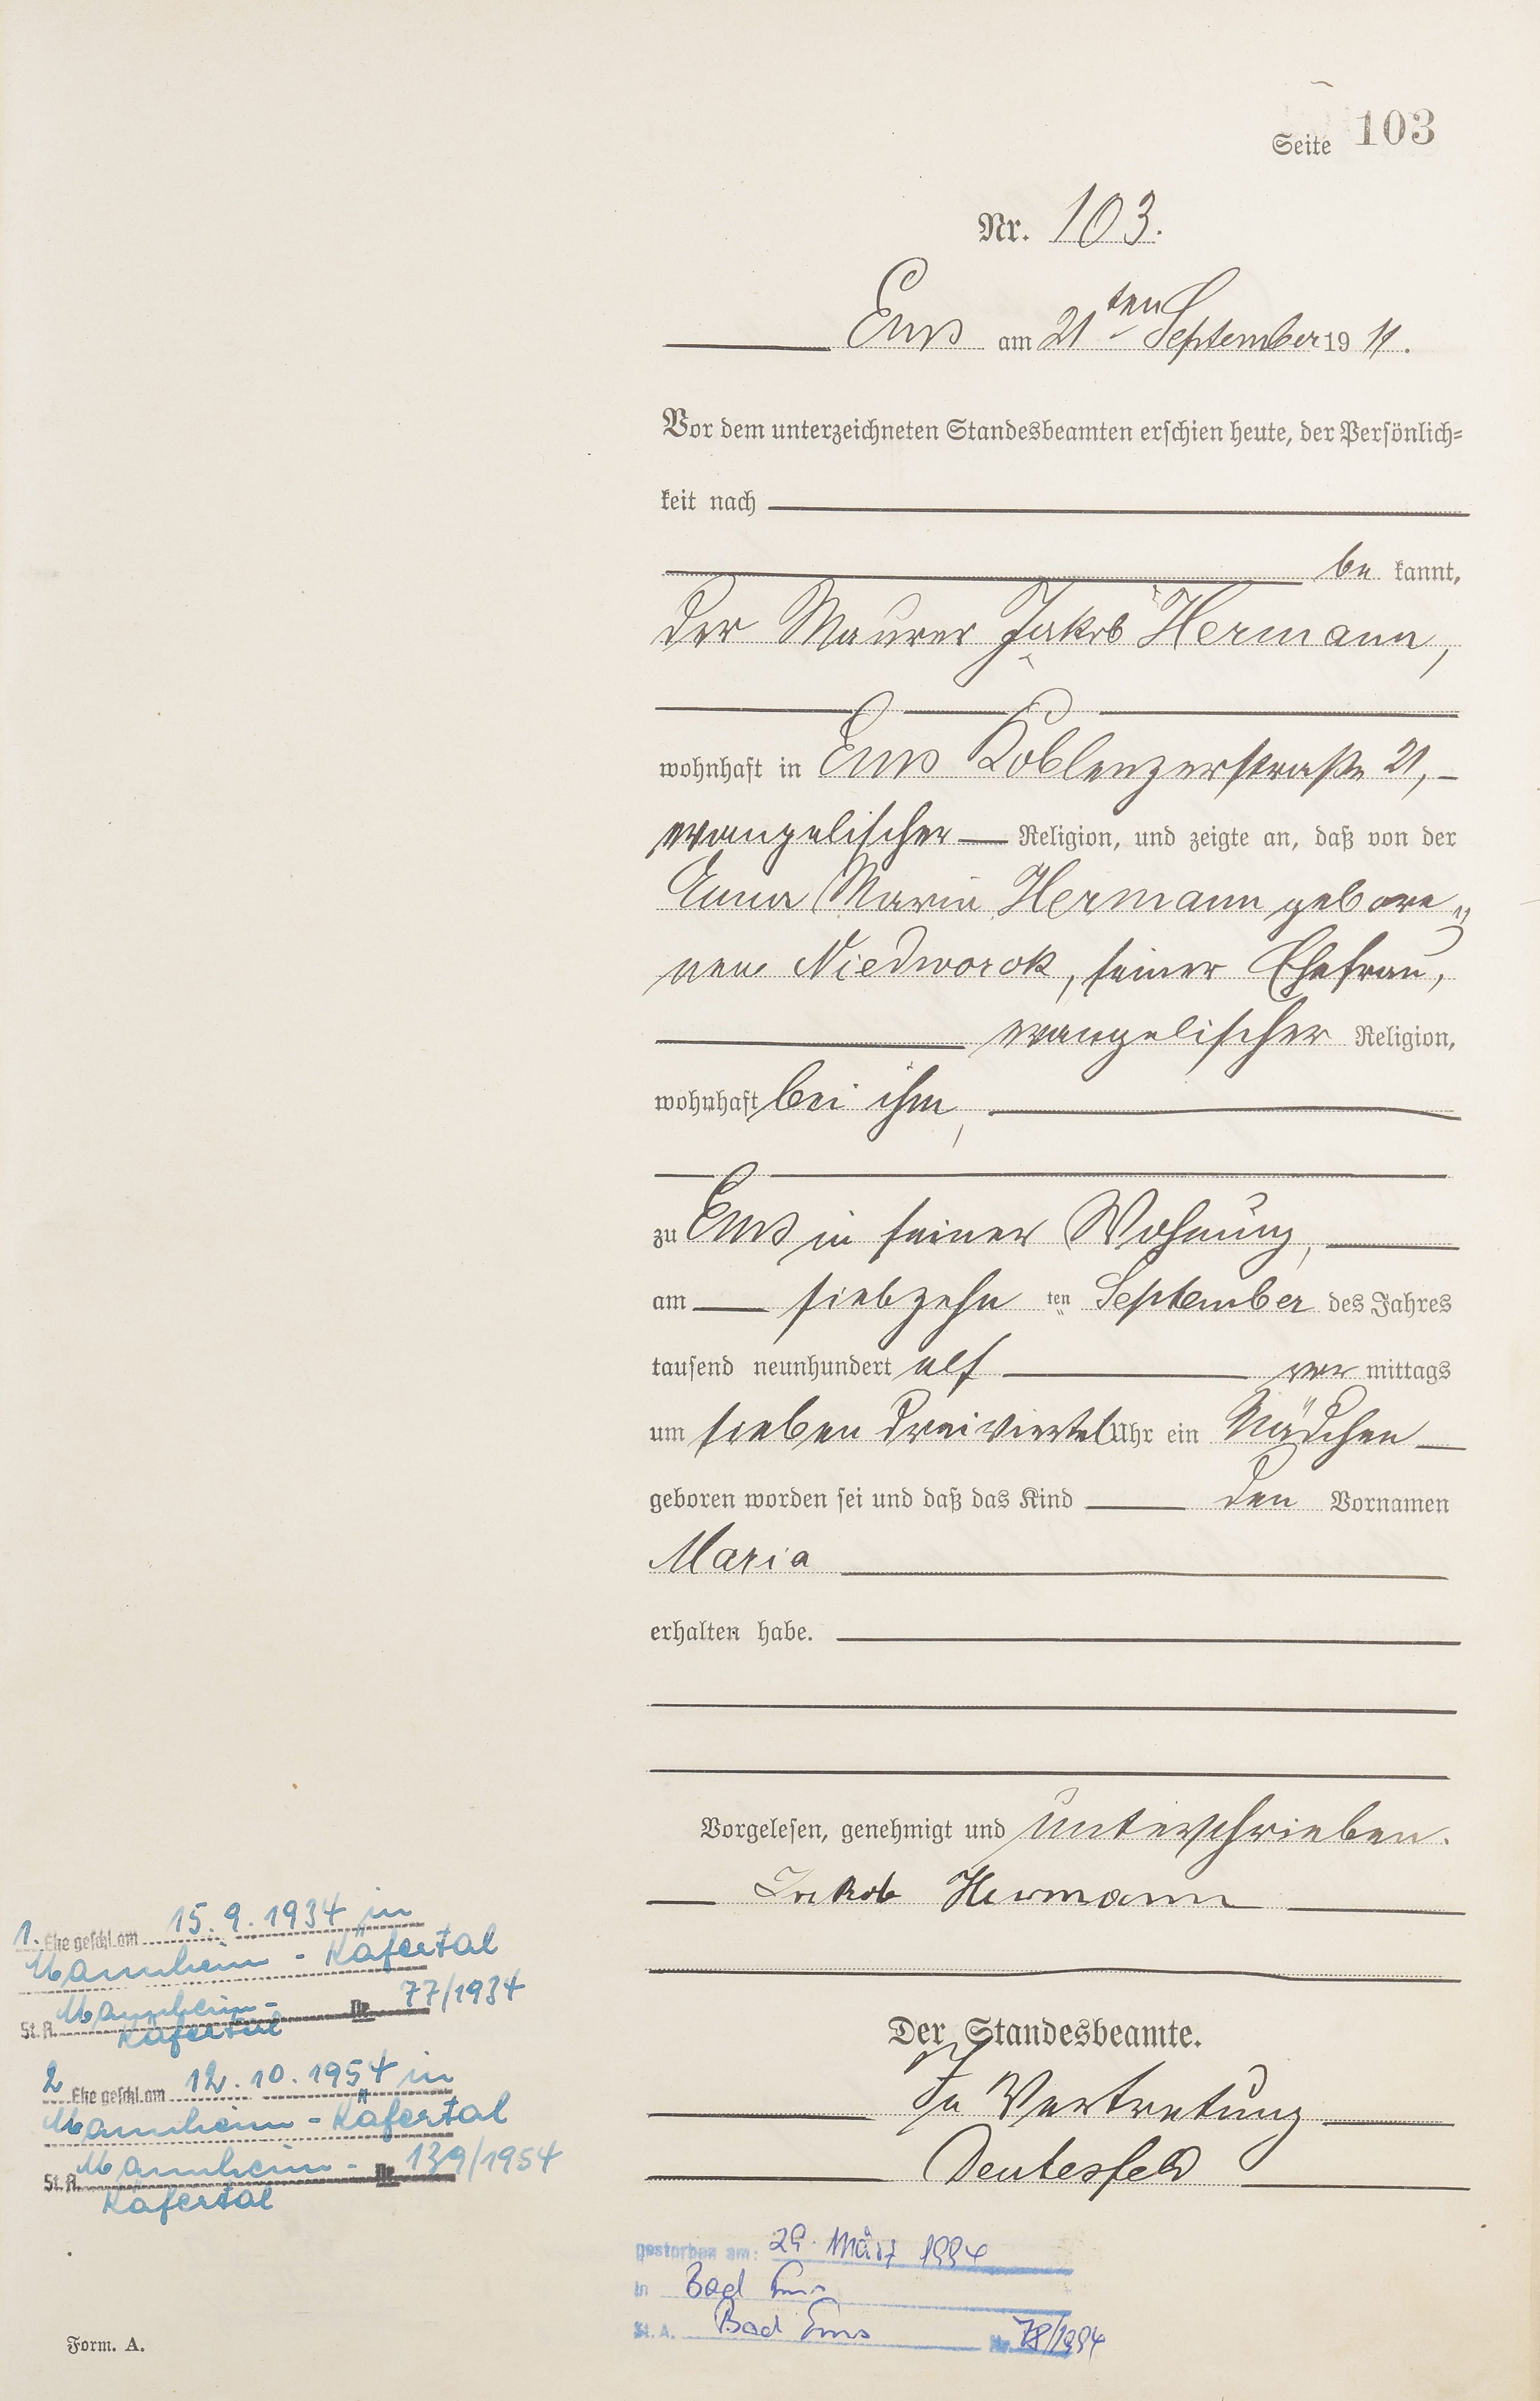 Seite 103
Nr. 103.
Ems am 21ten September 19 11.
Vor dem unterzeichneten Standesbeamten erschien heute, der Persönlich=
keit nach
be kannt,
der Maurer Jakob Hermann,
wohnhaft in Ems Koblenzerstraße 21,
evangelischer Religion, und zeigte an, daß von der
Anna Maria Hermann gebore„
nen Niedworok, seiner Ehefrau,
evangelischer Religion,
wohnhaft bei ihm,
zu Ems in seiner Wohnung,
am siebzehn ten September des Jahres
tausend neunhundert elf vor mittags
um sieben dreiviertel Uhr ein Mädchen
geboren worden sei und daß das Kind den Vornamen
Maria
erhalten habe.
Vorgelesen, genehmigt und unterschrieben.
Jakob Hermann
Der Standesbeamte.
In Vertretung
Deutesfeld
1. Ehe geschl. am 15.9.1934 in
Mannheim - Käfertal
St. A. Mannheim- Nr. 77/1934
Käfertal
2 Ehe geschl. am 12.10.1954 in
Mannheim - Käfertal
St. A. Mannheim- Nr. 139/1954
Käfertal
gestorben am: 29. März 1994
in Bad Ems
St. A. Bad Ems Nr. 78/1994
Form. A.